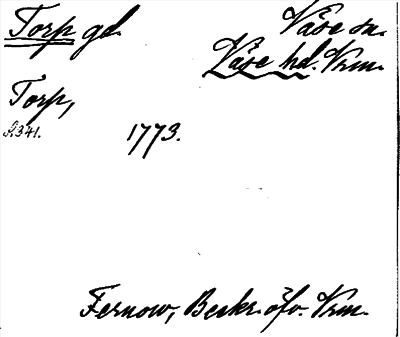 Torp gd.
Väse sn.
Väse hd. Vrm.
Torp,
S.341.
1773.
Fernow, Beskr. öfv. Vrm.